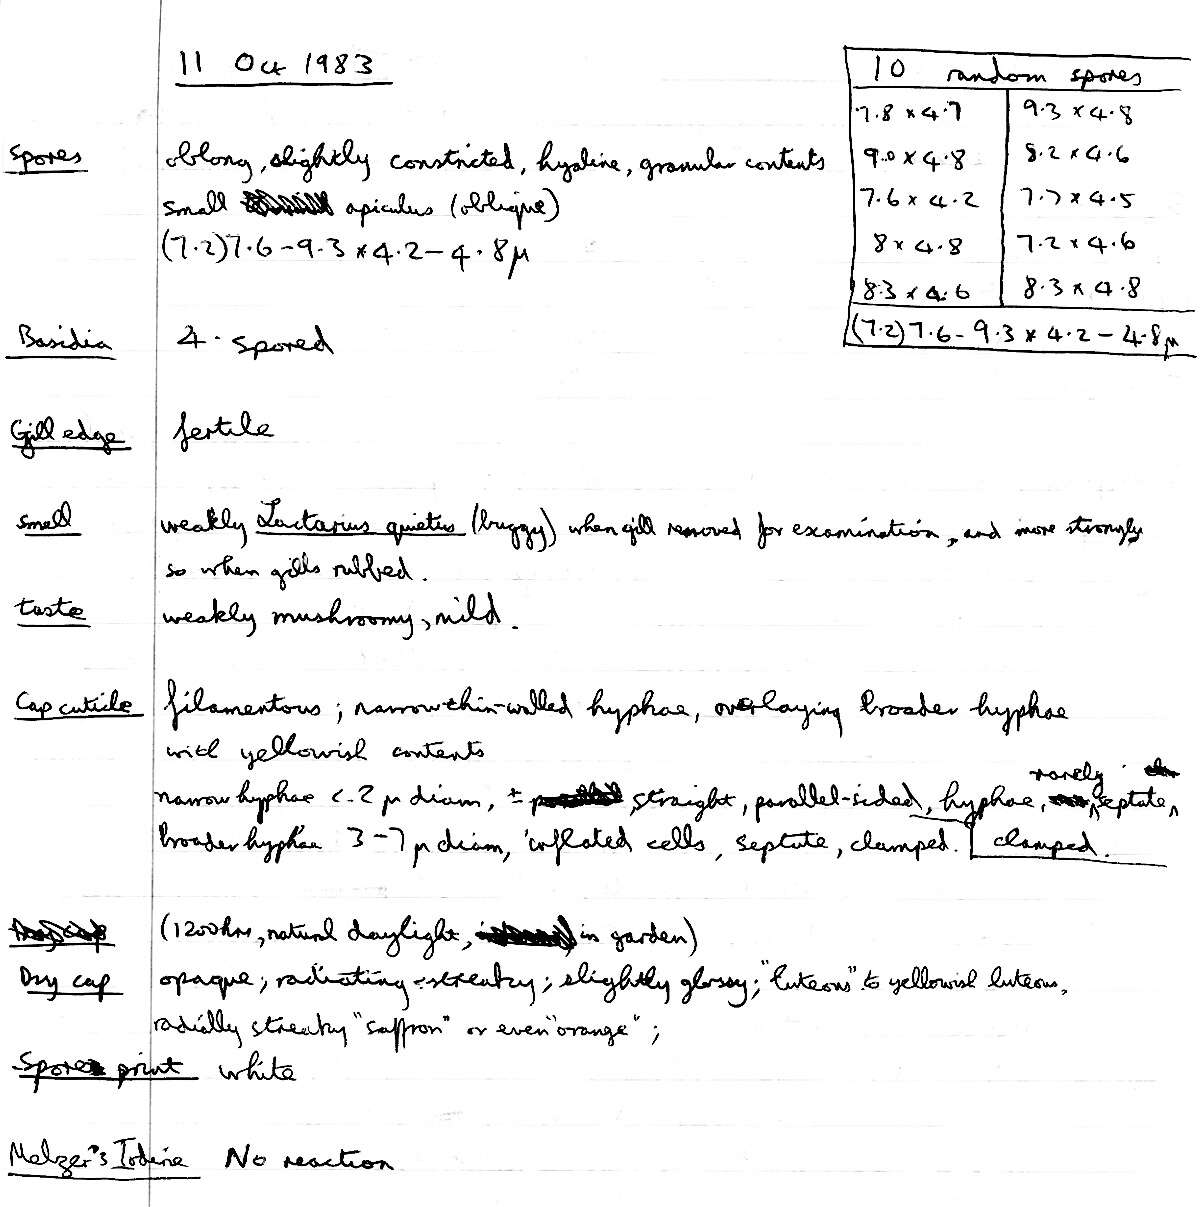 11 Oct 1983
10 random spores
7.8 × 4.7 9.3 × 4.8
9.0 × 4.8 8.2 × 4.6
7.6 × 4.2 7.7 × 4.5
8 × 4.8 7.2 × 4.6
8.3 × 4.6 8.3 × 4.8
(7.2)7.6-9.3 × 4.2-4.8µ
Spores oblong, slightly constricted, hyaline, granular contents
small apiculus (oblique)
(7.2)7.6-9.3 × 4.2-4.8µ
Basidia 4-spored
Gill edge fertile
Smell weakly Lactarius quietus (buggy) when gill removed for examination, and more strongly
so when gills rubbed.
taste weakly mushroomy, mild.
Cap cuticle filamentous; narrow thin-walled hyphae, overlaying broader hyphae
with yellowish contents
narrow hyphae c.2 µ diam, ± straight, parallel-sided, hyphae, rarely septate, clamped.
broader hyphae 3-7 µ diam, inflated cells, septate, clamped.
(1200hrs, natural daylight, in garden)
Dry cap opaque; radiating-streaky; slightly glossy; "luteous" to yellowish luteous,
radially streaky "saffron" or even "orange";
Spore print white
Melzer's Iodine No reaction